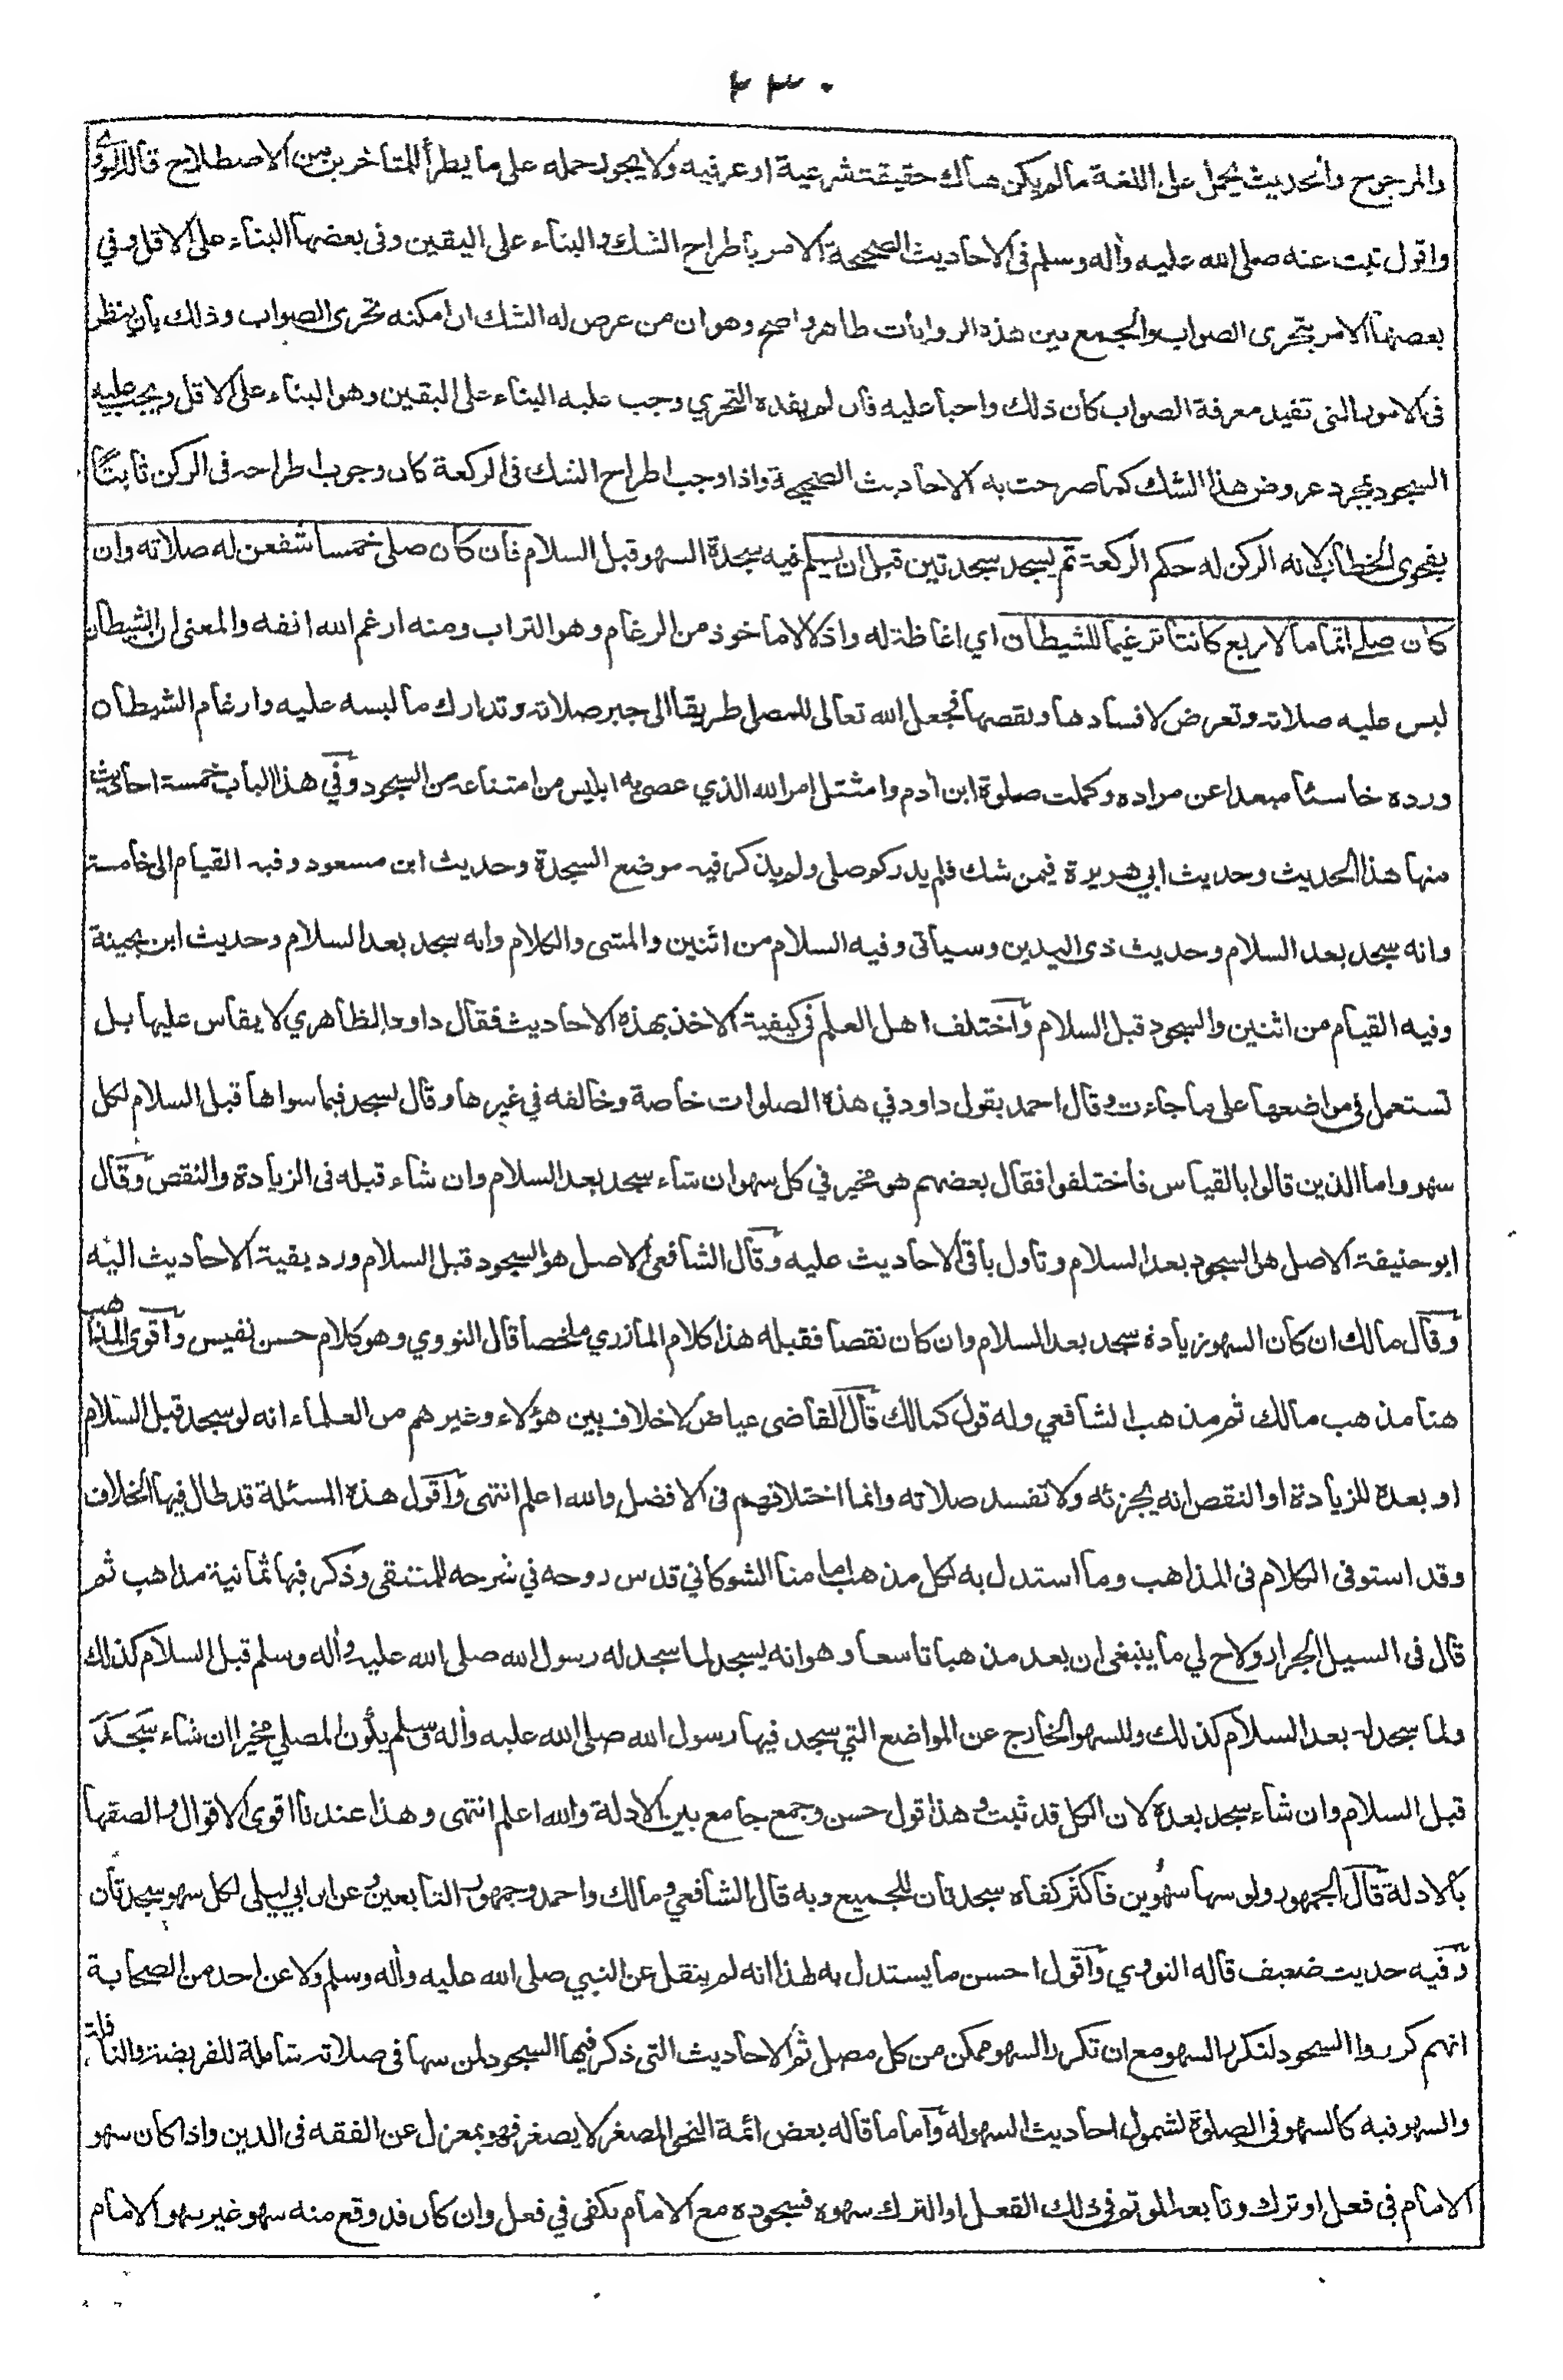 ٢٣٠
والمرجوح والحديث يحمل على اللغة مالم يكن هناك حقيقة شرعية او عرفيه ولا يجوز حمله على ما يطرأ للمتاخرين من الاصطلاح قاله النووي
واقول ثبت عنه صلى الله عليه وأله وسلم فى الاحاديث الصحيحة الامر باطراح الشك والبناء على اليقين وفى بعضها البناء على الاقل وفي
بعضها الامر بتحرى الصواب والجمع بين هذه الروايات ظاهر واضح وهو ان من عرض له الشك ان امكنه تحرى الصواب وذلك بأن ينظر
فى الامور التى تفيد معرفة الصواب كان ذلك واجبا عليه فان لم يفده التحري وجب عليه البناء على اليقين وهو البناء على الاقل ويجب عليه
السجود بمجرد عروض هذا الشك كما صرحت به الاحاديث الصحيحة واذا وجب اطراح الشك فى الركعة كان وجوب اطراحه فى الركن ثابتًا
بفحوى الخطاب لانه الركن له حكم الركعة ثم يسجد سجدتين قبل ان يسلم فيه سجدة السهو قبل السلام فان كان صلى خمسا شفعن له صلاته وان
كان صلے اتماما لاربع كانتا ترغيما للشيطان اي اغاظة له واذلالا ماخوذ من الرغام وهو التراب ومنه ارغم الله انفه والمعنى ان الشيطان
لبس عليه صلاته وتعرض لافسادها ونقصها فجعل الله تعالى للمصلى طريقا الى جبر صلاته وتدارك ما لبسه عليه وارغام الشيطان
ورده خاسئا مبعدا عن مراده وكملت صلوة ابن أدم وامتثل امر الله الذي عصى به ابليس من امتناعه من السجود وفي هذا الباب خمسة احاديث
منها هذا الحديث وحديث ابي هريرة فيمن شك فلم يدر كم صلى ولم يذكر فيه موضع السجدة وحديث ابن مسعود وفيه القيام الى خامسة
وانه سجد بعد السلام وحديث ذى اليدين وسيأتى وفيه السلام من اثنين والمشى والكلام وانه سجد بعد السلام وحديث ابن بحينة
وفيه القيام من اثنين والسجود قبل السلام واختلف اهل العلم فى كيفية الاخذ بهذه الاحاديث فقال داود الظاهري لا يقاس عليها بل
تستعمل فى مواضعها على ما جاءت وقال احمد بقول داود في هذه الصلوات خاصة وخالفه في غيرها وقال يسجد فيما سواها قبل السلام لكل
سهو واما الذين قالوا بالقياس فاختلفوا فقال بعضهم هو مخير في كل سهو ان شاء سجد بعد السلام وان شاء قبله فى الزيادة والنقص وقال
ابو حنيفة الاصل هو السجود بعد السلام وتأول باقى الاحاديث عليه وقال الشافعى الاصل هو السجود قبل السلام ورد بقية الاحاديث اليه
وقال مالك ان كان السهو زيادة سجد بعد السلام وان كان نقصا فقبله هذا كلام المازري ملخصا قال النووي وهو كلام حسن نفيس واقوى المذاهب
هنا مذهب مالك ثم مذهب الشافعي وله قول كمالك قال القاضى عياض لاخلاف بين هؤلاء وغيرهم من العلماء انه لو سجد قبل السّلام
او بعده للزيادة او النقص انه يجزئه ولا تفسد صلاته وانما اختلافهم فى الافضل والله اعلم انتهى واقول هذه المسئلة قد طال فيها الخلاف
وقد استوفى الكلام فى المذاهب وما استدل به لكل مذهب امامنا الشوكاني قدس روحه في شرحه للمنتقى وذكر فيها ثمانية مذاهب ثم
قال فى السيل الجرار ولاح لي ما ينبغى ان يعد مذهبا تاسعا وهو انه يسجد لما سجد له رسول الله صلى الله عليه وأله وسلم قبل السلام كذلك
ولما سجد له بعد السلام كذلك وللسهو الخارج عن المواضع التي سجد فيها رسول الله صلى الله عليه وأله وسلم يكون المصلي مخيرا ان شاء سَجَدَ
قبل السلام وان شاء سجد بعده لان الكل قد ثبت وهذا قول حسن وجمع جامع بين الادلة والله اعلم انتهى وهذا عندنا اقوى الاقوال والصقها
بالادلة قال الجمهور ولو سها سهوين فاكثر كفاه سجدتان للجميع وبه قال الشافعي ومالك واحمد وجمهور التابعين وعن ابن ابي ليلى لكل سهو سجدتان
وفيه حديث ضعيف قاله النووي واقول احسن ما يستدل به لهذا انه لم ينقل عن النبي صلى الله عليه وأله وسلم ولا عن احد من الصحابة
انهم كرروا السجود لتكرر السهو مع ان تكرر السهو ممكن من كل مصل ثم الاحاديث التى ذكر فيها السجود لمن سها فى صلاته شاملة للفريضة والنافلة
والسهو فيه كالسهو فى الصلوة لشمول احاديث السهو له واما ما قاله بعض ائمة النحو المصغر لا يصغر فهو بمعزل عن الفقه فى الدين واذا كان سهو
الامام فى فعل او ترك وتابعه المؤتم فى ذلك الفعل او الترك سهوه فسجوده مع الامام يكفى في فعل وان كان قد وقع منه سهو غير سهو الامام